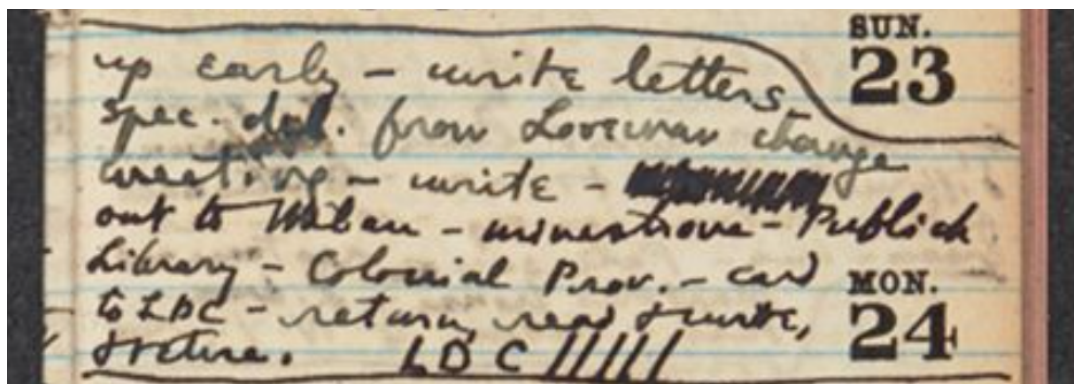 SUN.
23
up early – write letters
spec. del. from Loveman change
meeting – write –
out to Milan – minestrone – Publick
Library – Colonial Prov. – card
MON.
to LDC – return, read & write,
24
& retire. LDC /////